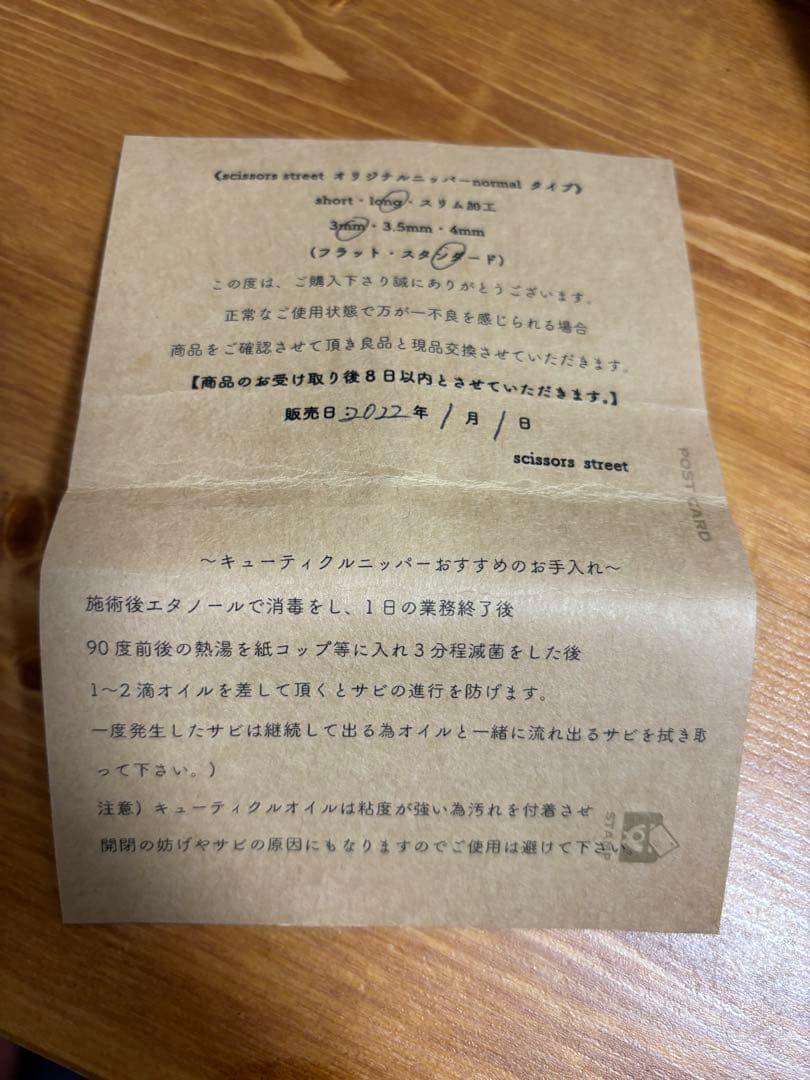 《scissors street オリジナルニッパーnormal タイプ》
short・long・スリム加工
3mm・3.5mm・4mm
(フラット・スタンダード)
この度は、ご購入下さり誠にありがとうございます。
正常なご使用状態で万が一不良を感じられる場合
商品をご確認させて頂き良品と現品交換させていただきます。
【商品のお受け取り後8日以内とさせていただきます。】
販売日:2022年 1月 1日
scissors street
POST CARD
～キューティクルニッパーおすすめのお手入れ～
施術後エタノールで消毒をし、1日の業務終了後
90度前後の熱湯を紙コップ等に入れ3分程滅菌をした後
1～2滴オイルを差して頂くとサビの進行を防げます。
一度発生したサビは継続して出る為オイルと一緒に流れ出るサビを拭き取
って下さい。)
注意)キューティクルオイルは粘度が強い為汚れを付着させ
開閉の妨げやサビの原因にもなりますのでご使用は避けて下さい。
STAMP